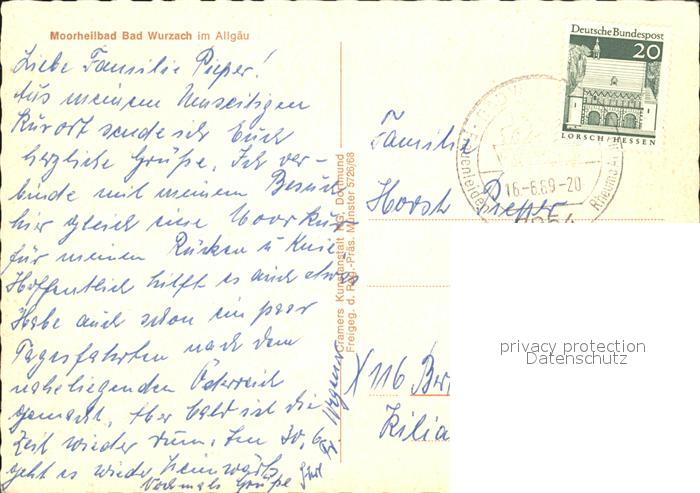 Moorheilbad Bad Wurzach im Allgäu
Liebe Familie Pieper!
Aus meinem Umseitigen
Kurort sende ich Euch
herzliche Grüße. Ich ver-
binde mit meinem Besuch
hier gleich eine Moorkur
für meinen Rücken u Knie.
Hoffentlich hilft es auch etwas
Habe auch schon ein paar
Tagesfahrten nach dem
naheliegenden Österreich
gemacht. Aber bald ist die
Zeit wieder rum. Am 30. 6.
geht es wieder heimwärts
Nochmals Grüße
Cramers Kunstanstalt KG, Dortmund
Freigeg. d. Reg.-Präs. Münster 5726/68
Deutsche Bundespost
20
LORSCH/HESSEN
16.-6.69-20
Familie
Horst Pieper
X 116 Ber
Kilia
privacy protection
Datenschutz